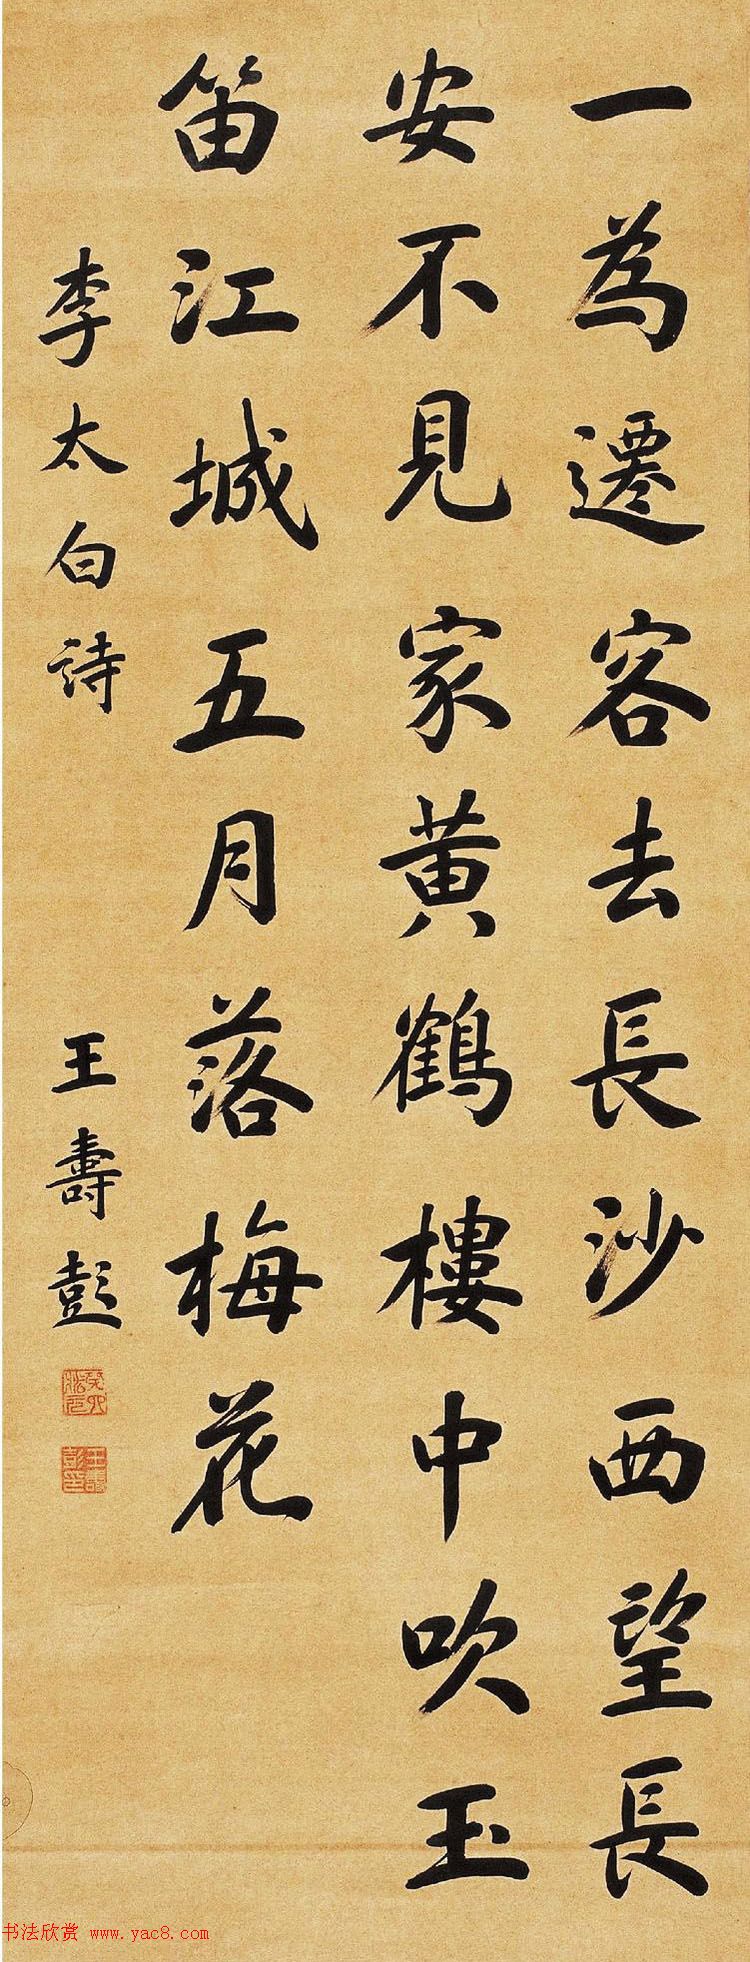 一為遷客去長沙西望長
安不見家黄鶴樓中吹玉
笛江城五月落梅花
李太白詩
王壽彭
书法欣赏 www.yac8.com